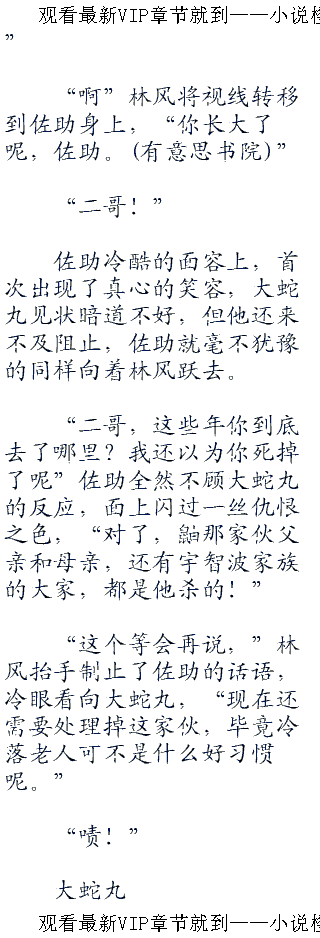 观看最新VIP章节就到——小说
”
“啊”林风将视线转移
到佐助身上，“你长大了
呢，佐助。(有意思书院)”
“二哥！”
佐助冷酷的面容上，首
次出现了真心的笑容，大蛇
丸见状暗道不好，但他还来
不及阻止，佐助就毫不犹豫
的同样向着林风跃去。
“二哥，这些年你到底
去了哪里？我还以为你死掉
了呢”佐助全然不顾大蛇丸
的反应，面上闪过一丝仇恨
之色，“对了，鼬那家伙父
亲和母亲，还有宇智波家族
的大家，都是他杀的！”
“这个等会再说，”林
风抬手制止了佐助的话语，
冷眼看向大蛇丸，“现在还
需要处理掉这家伙，毕竟冷
落老人可不是什么好习惯
呢。”
“啧！”
大蛇丸
观看最新VIP章节就到——小说